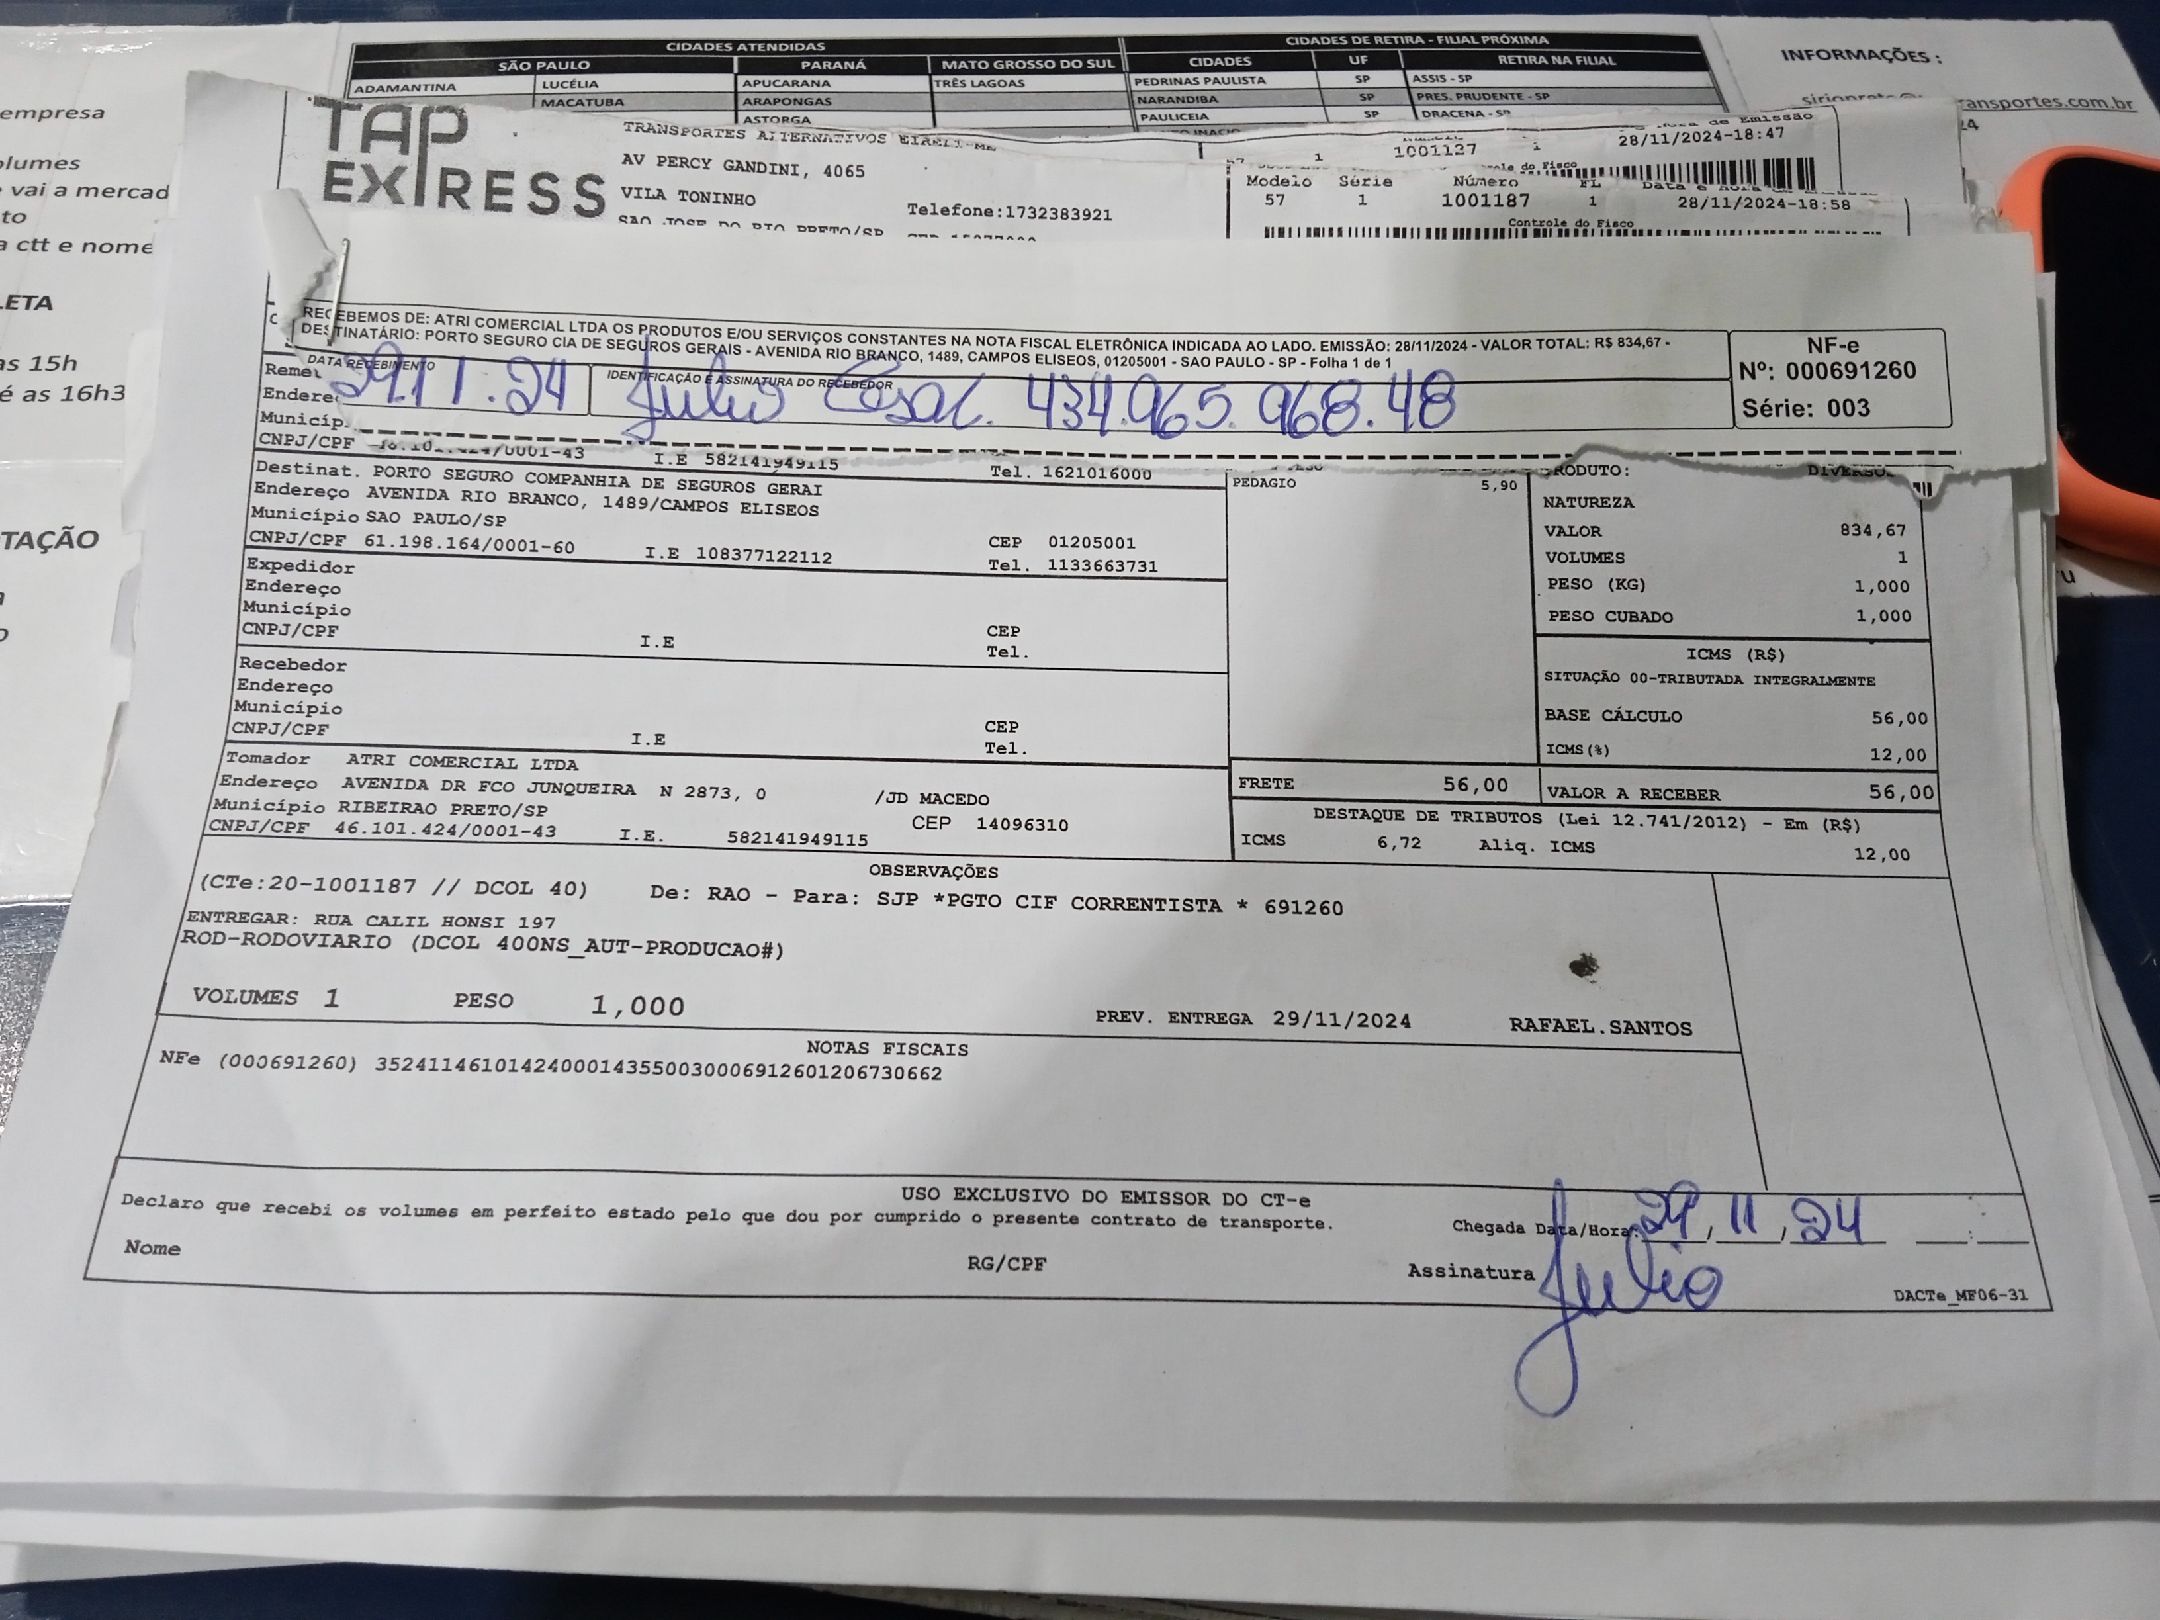 CIDADES ATENDIDAS
CIDADES DE RETIRA - FILIAL PRÓXIMA
INFORMAÇÕES :
SÃO PAULO PARANÁ MATO GROSSO DO SUL
CIDADES UF RETIRA NA FILIAL
ADAMANTINA LUCÉLIA APUCARANA TRÊS LAGOAS
PEDRINAS PAULISTA SP ASSIS - SP
MACATUBA ARAPONGAS
NARANDIBA SP PRES. PRUDENTE - SP
ASTORGA
PAULICEIA SP DRACENA - SP
ansportes.com.br
empresa
olumes
vai a mercad
to
a ctt e nome
LETA
as 15h
é as 16h3
TAÇÃO
TAP
EXPRESS
TRANSPORTES ALTERNATIVOS EIRELI-ME
AV PERCY GANDINI, 4065
VILA TONINHO
SAO JOSE DO RIO PRETO/SP
Telefone:1732383921
1 1001127 1 28/11/2024-18:47
Modelo Série Número FL
57 1 1001187 1 28/11/2024-18:58
Controle do Fisco
RECEBEMOS DE: ATRI COMERCIAL LTDA OS PRODUTOS E/OU SERVIÇOS CONSTANTES NA NOTA FISCAL ELETRÔNICA INDICADA AO LADO. EMISSÃO: 28/11/2024 - VALOR TOTAL: R$ 834,67 -
DESTINATÁRIO: PORTO SEGURO CIA DE SEGUROS GERAIS - AVENIDA RIO BRANCO, 1489, CAMPOS ELISEOS, 01205001 - SAO PAULO - SP - Folha 1 de 1
NF-e
Nº: 000691260
Série: 003
DATA RECEBIMENTO
IDENTIFICAÇÃO E ASSINATURA DO RECEBEDOR
29.11.24 Julio Cesar. 434.965.968.48
Endere
Municíp
CNPJ/CPF 0001-43 I.E 582141949115 Tel. 1621016000
Destinat. PORTO SEGURO COMPANHIA DE SEGUROS GERAI
Endereço AVENIDA RIO BRANCO, 1489/CAMPOS ELISEOS
Município SAO PAULO/SP CEP 01205001
CNPJ/CPF 61.198.164/0001-60 I.E 108377122112 Tel. 1133663731
Expedidor
Endereço
Município CEP
CNPJ/CPF I.E Tel.
Recebedor
Endereço
Município CEP
CNPJ/CPF I.E Tel.
Tomador ATRI COMERCIAL LTDA
Endereço AVENIDA DR FCO JUNQUEIRA N 2873, 0 /JD MACEDO
Município RIBEIRAO PRETO/SP CEP 14096310
CNPJ/CPF 46.101.424/0001-43 I.E. 582141949115
PEDAGIO 5,90
RODUTO:
NATUREZA
VALOR 834,67
VOLUMES 1
PESO (KG) 1,000
PESO CUBADO 1,000
ICMS (R$)
SITUAÇÃO 00-TRIBUTADA INTEGRALMENTE
BASE CÁLCULO 56,00
ICMS(%) 12,00
FRETE 56,00 VALOR A RECEBER 56,00
DESTAQUE DE TRIBUTOS (Lei 12.741/2012) - Em (R$)
ICMS 6,72 Aliq. ICMS 12,00
OBSERVAÇÕES
(CTe:20-1001187 // DCOL 40) De: RAO - Para: SJP *PGTO CIF CORRENTISTA * 691260
ENTREGAR: RUA CALIL HONSI 197
ROD-RODOVIARIO (DCOL 400NS_AUT-PRODUCAO#)
VOLUMES 1 PESO 1,000 PREV. ENTREGA 29/11/2024 RAFAEL.SANTOS
NOTAS FISCAIS
NFe (000691260) 35241146101424000143550030006912601206730662
USO EXCLUSIVO DO EMISSOR DO CT-e
Declaro que recebi os volumes em perfeito estado pelo que dou por cumprido o presente contrato de transporte.
Chegada Data/Hora: 29/11/24
Nome RG/CPF Assinatura Julio
DACTe_MF06-31